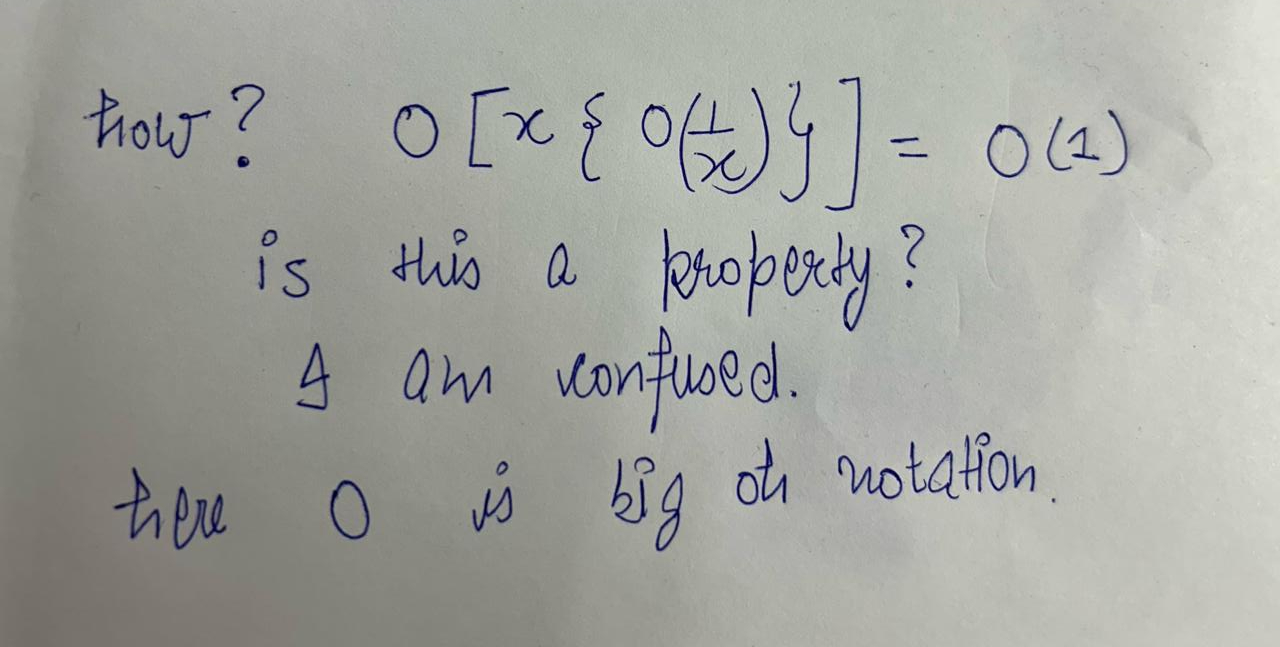 how? O[x{O(1/x)}] = O(1)
is this a property?
I am confused.
here O is big oh notation.